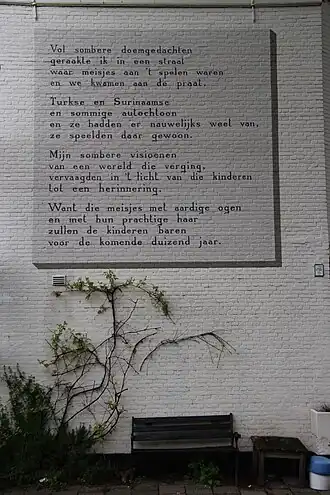 Vol sombere doemgedachten
geraakte ik in een straat
waar meisjes aan 't spelen waren
en we kwamen aan de praat.
Turkse en Surinaamse
en sommige autochtoon
en ze hadden er nauwelijks weet van,
ze speelden daar gewoon.
Mijn sombere visioenen
van een wereld die verging,
vervaagden in 't licht van die kinderen
tot een herinnering.
Want die meisjes met aardige ogen
en met hun prachtige haar
zullen de kinderen baren
voor de komende duizend jaar.